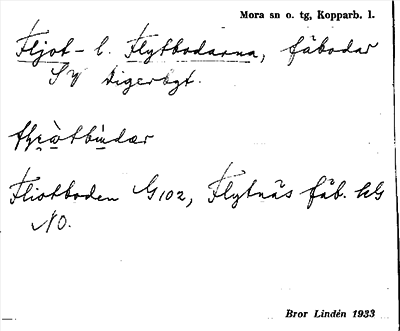 Mora sn o. tg, Kopparb. l.
Fljot- l. Flytbodarna, fäbodar
SV Digerbgt.
Fliotboden G102, Flytnäs fäb. hG
NO.
Bror Lindén 1933